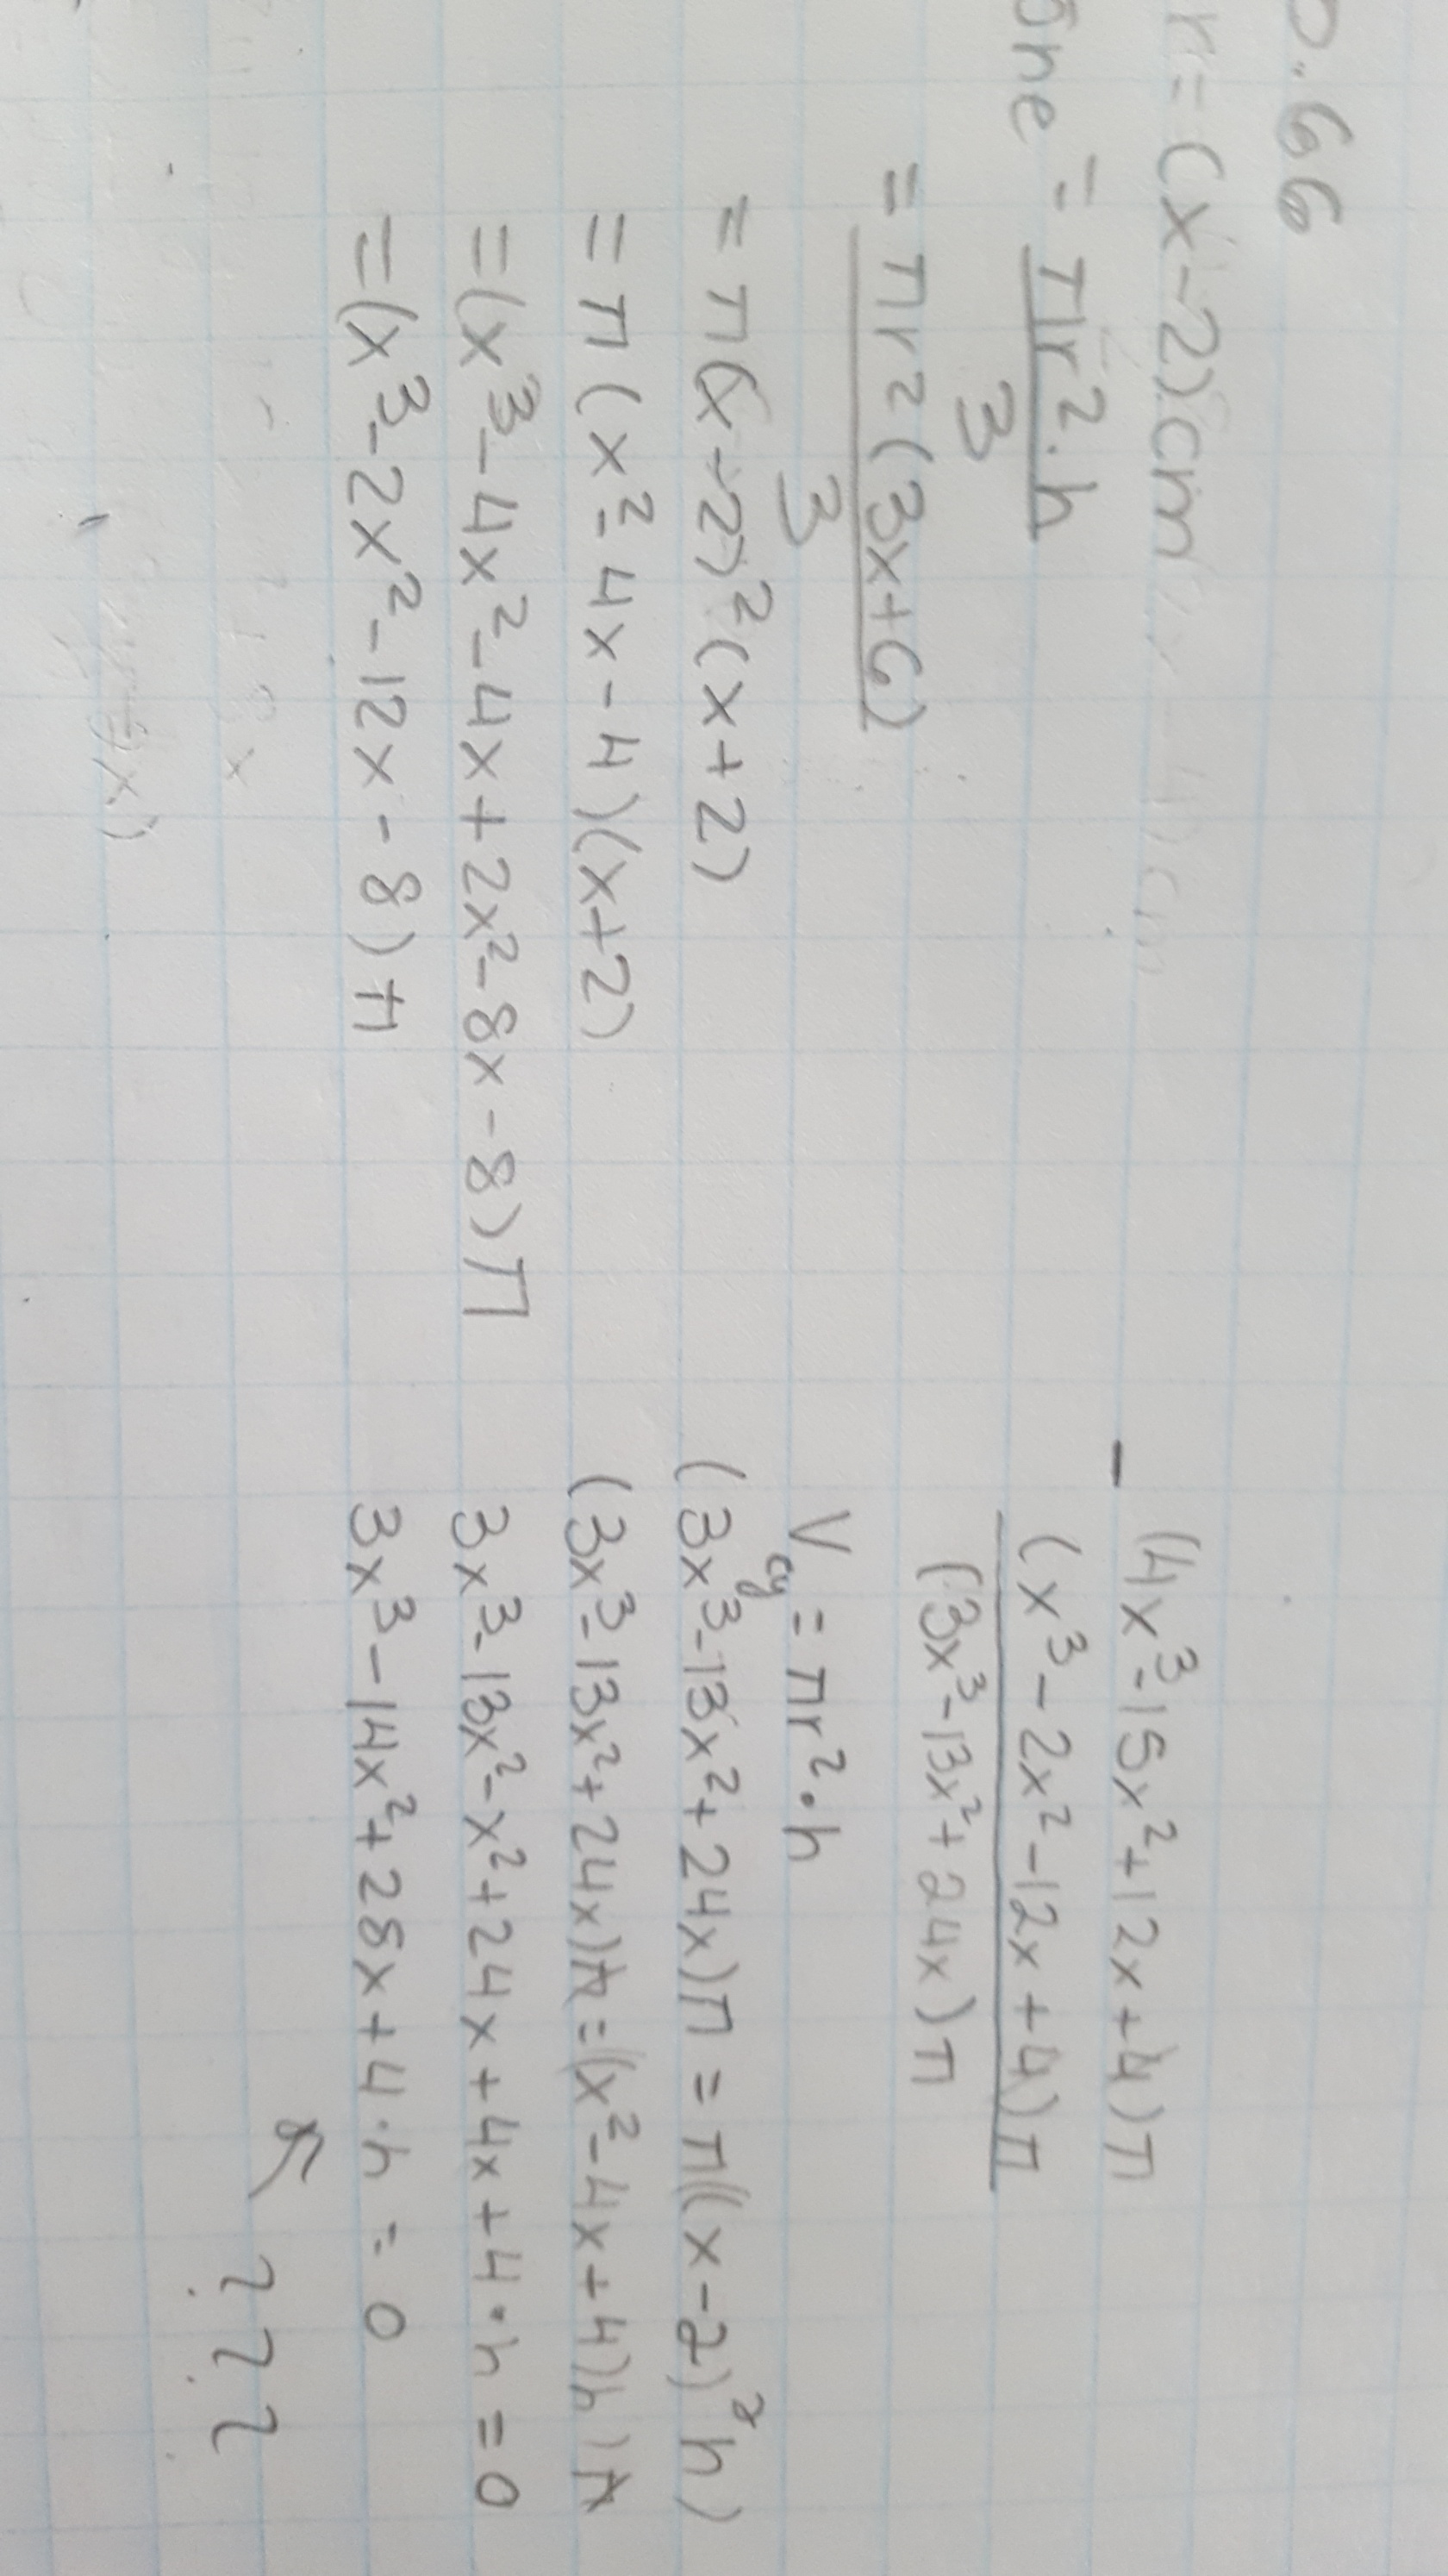 p.66
r = (x-2)cm
one = πr²·h
3
= πr²(3x+6)
3
= π(x-2)²(x+2)
= π(x²-4x-4)(x+2)
= (x³-4x²-4x+2x²-8x-8)π
= (x³-2x²-12x-8)π
- (4x³-15x²+12x+4)π
(x³-2x²-12x+4)π
(3x³-13x²+24x)π
Vcy = πr²·h
(3x³-13x²+24x)π = π((x-2)²h)
(3x³-13x²+24x)π = ((x²-4x+4)h)π
3x³-13x²-x²+24x+4x+4·h = 0
3x³-14x²+28x+4·h = 0
???